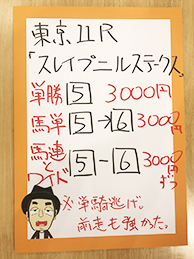 東京11R
「スレイプニルステークス」
単勝 5 3000円
馬単 5→6 3000円
馬連とワイド 5-6 3000円ずつ
※単騎逃げ。
前走も強かった。